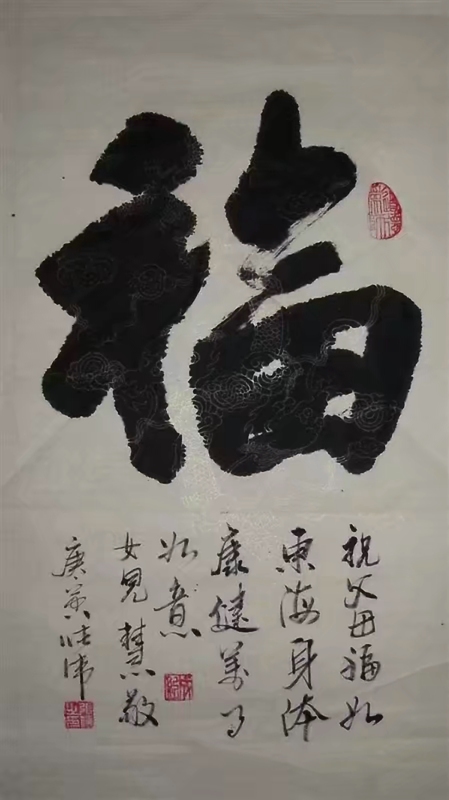 福
祝父母福如
東海身体
康健萬事
如意
女兒慧敬
庚寅